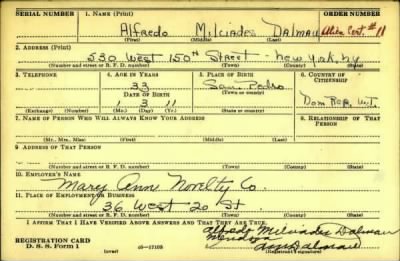 SERIAL NUMBER 1. NAME (Print) ORDER NUMBER
Alfredo Milciades Dalmau Alien Cert. #11
(First) (Middle) (Last)
2. ADDRESS (Print)
530 West 150th Street New York, NY
(Number and street or R. F. D. number) (Town) (County) (State)
3. TELEPHONE 4. AGE IN YEARS 5. PLACE OF BIRTH 6. COUNTRY OF CITIZENSHIP
33 San Pedro
DATE OF BIRTH (Town or county)
1 3 11 Dom Rep.
(Exchange) (Number) (Mo.) (Day) (Yr.) (State or country)
7. NAME OF PERSON WHO WILL ALWAYS KNOW YOUR ADDRESS 8. RELATIONSHIP OF THAT PERSON
(Mr., Mrs., Miss) (First) (Middle) (Last)
9. ADDRESS OF THAT PERSON
(Number and street or R. F. D. number) (Town) (County) (State)
10. EMPLOYER'S NAME
Mary Ann Novelty Co.
11. PLACE OF EMPLOYMENT OR BUSINESS
36 West 20 St
(Number and street or R. F. D. number) (Town) (County) (State)
I AFFIRM THAT I HAVE VERIFIED ABOVE ANSWERS AND THAT THEY ARE TRUE.
Alfredo Milciades Dalmau
REGISTRATION CARD
D. S. S. Form 1 (over) 16-17105 Dalmau